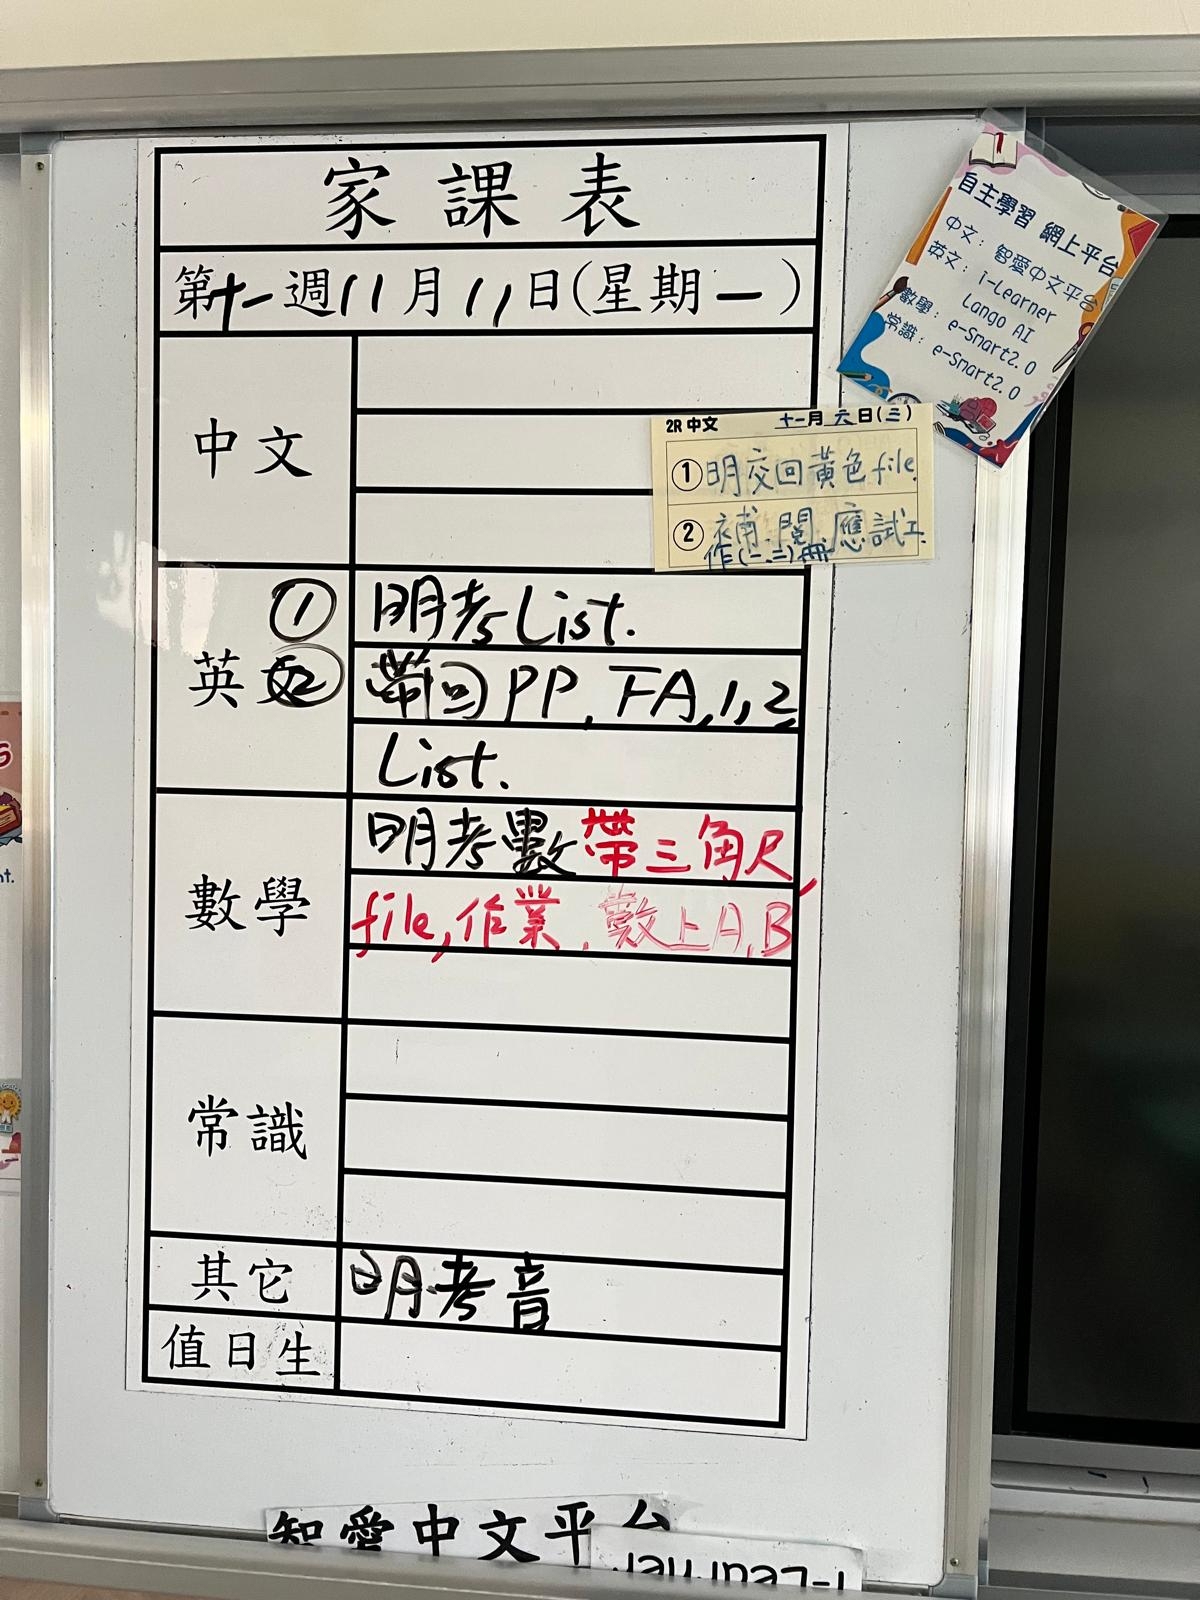 家課表
第十一週11月11日(星期一)
中文
2R 中文 十一月六日(三)
① 明交回黃色file.
② 補.閱.應試工
作(一、二)冊
英文
① 明考List.
② 帶回PP, TA, 1, 2
List.
數學
明考數 帶三角尺,
file,作業,數上A,B
常識
其它
明考音
值日生
自主學習 網上平台
中文: 智愛中文平台
英文: i-Learner
Lango AI
數學: e-Smart2.0
常識: e-Smart2.0
智愛中文平台
i-Learner